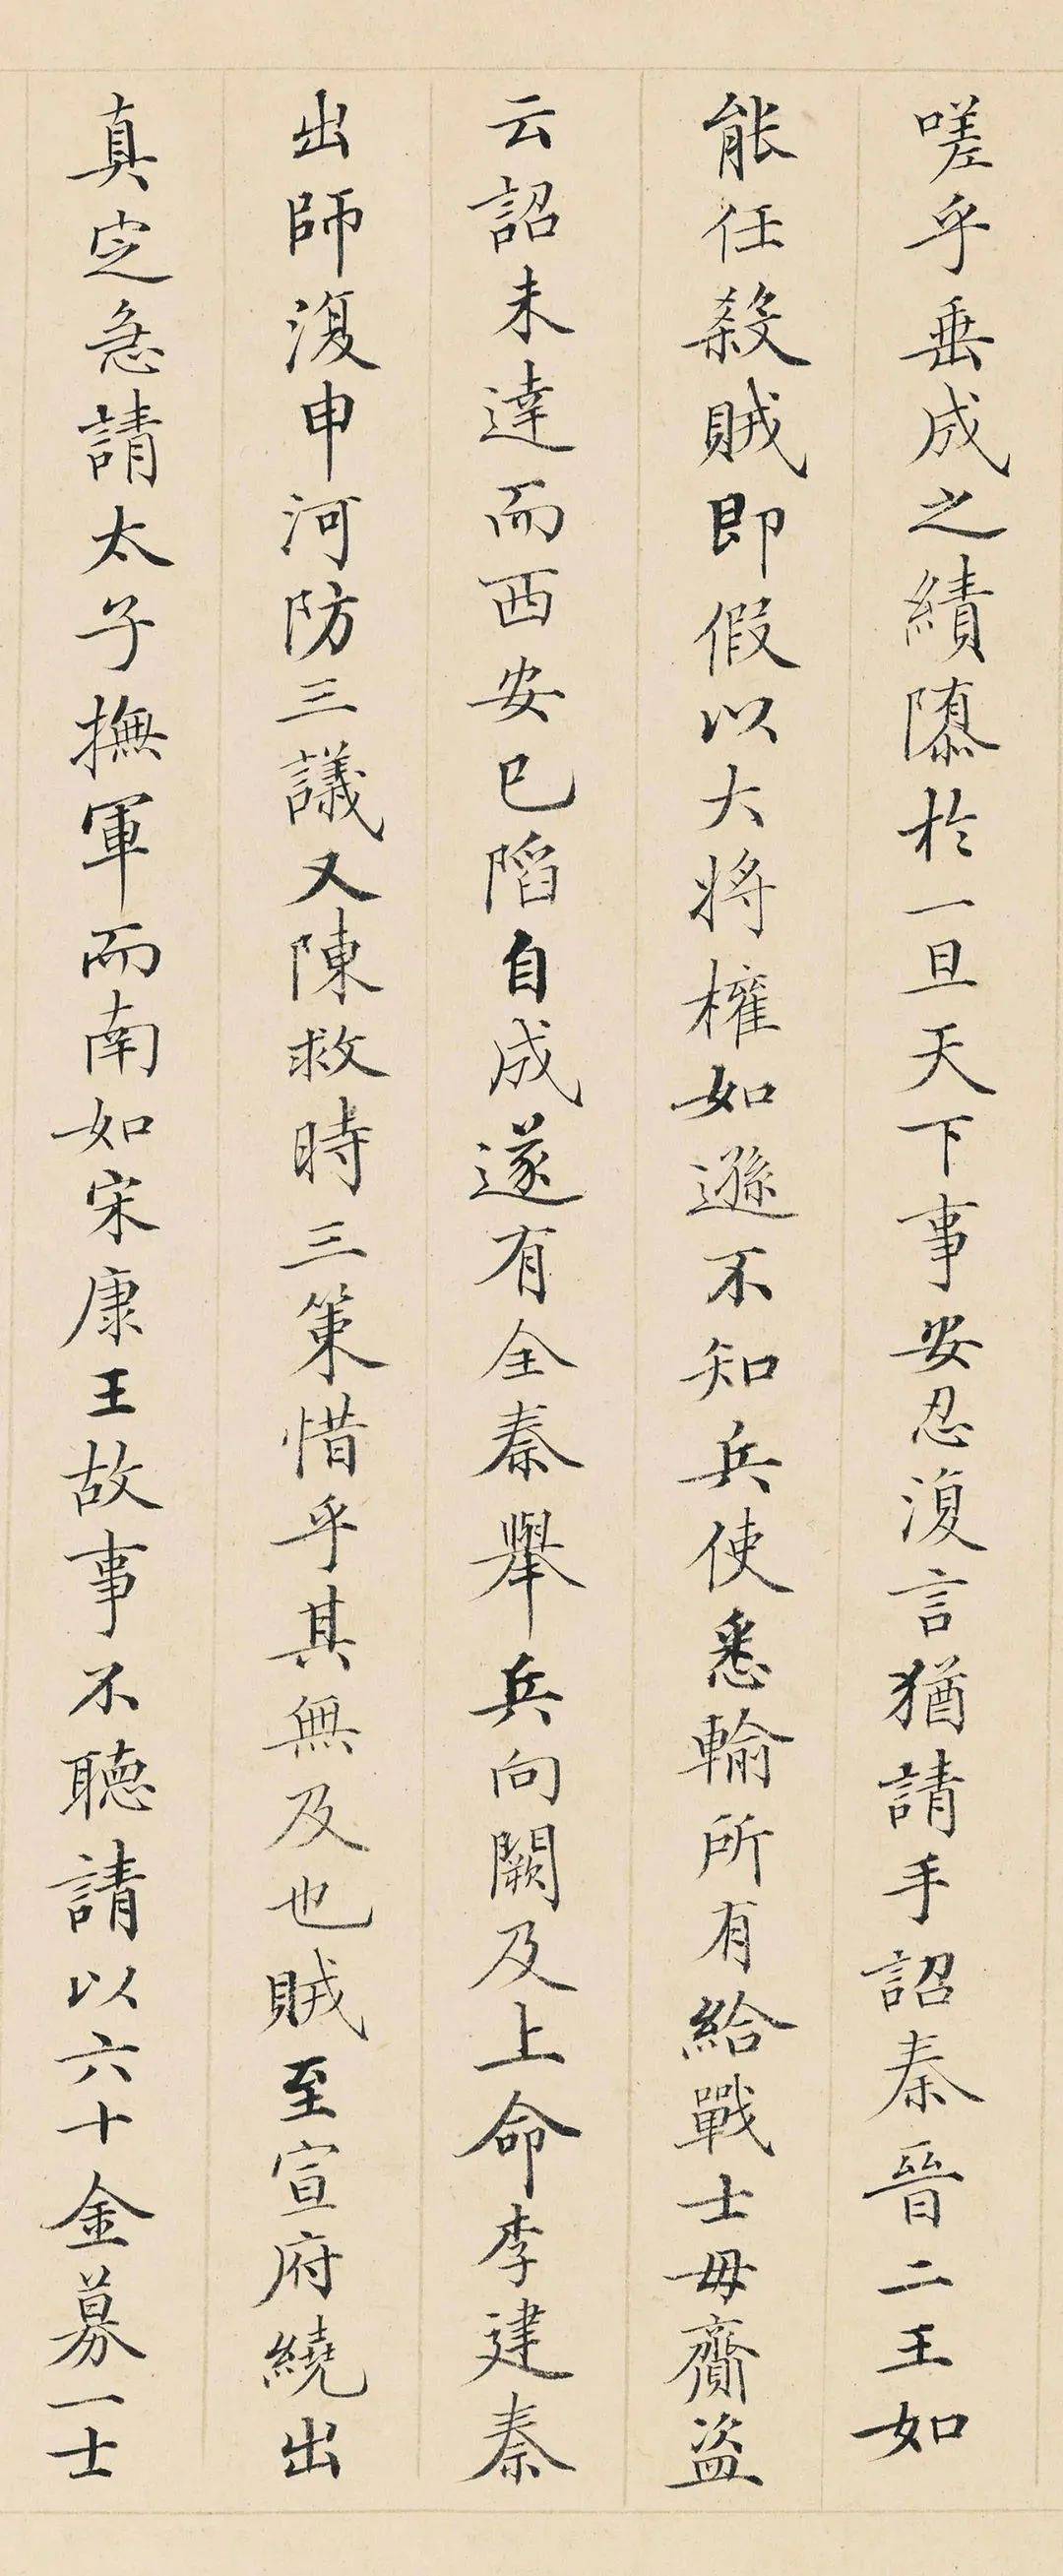 嗟乎垂成之績隳於一旦天下事安忍復言猶請手詔秦晉二王如
能任殺賊即假以大將權如遜不知兵使悉輸所有給戰士毋齎盜
云詔未達而西安已陷自成遂有全秦舉兵向闕及上命李建泰
出師復申河防三議又陳救時三策惜乎其無及也賊至宣府繞出
真定急請太子撫軍而南如宋康王故事不聽請以六十金募一士